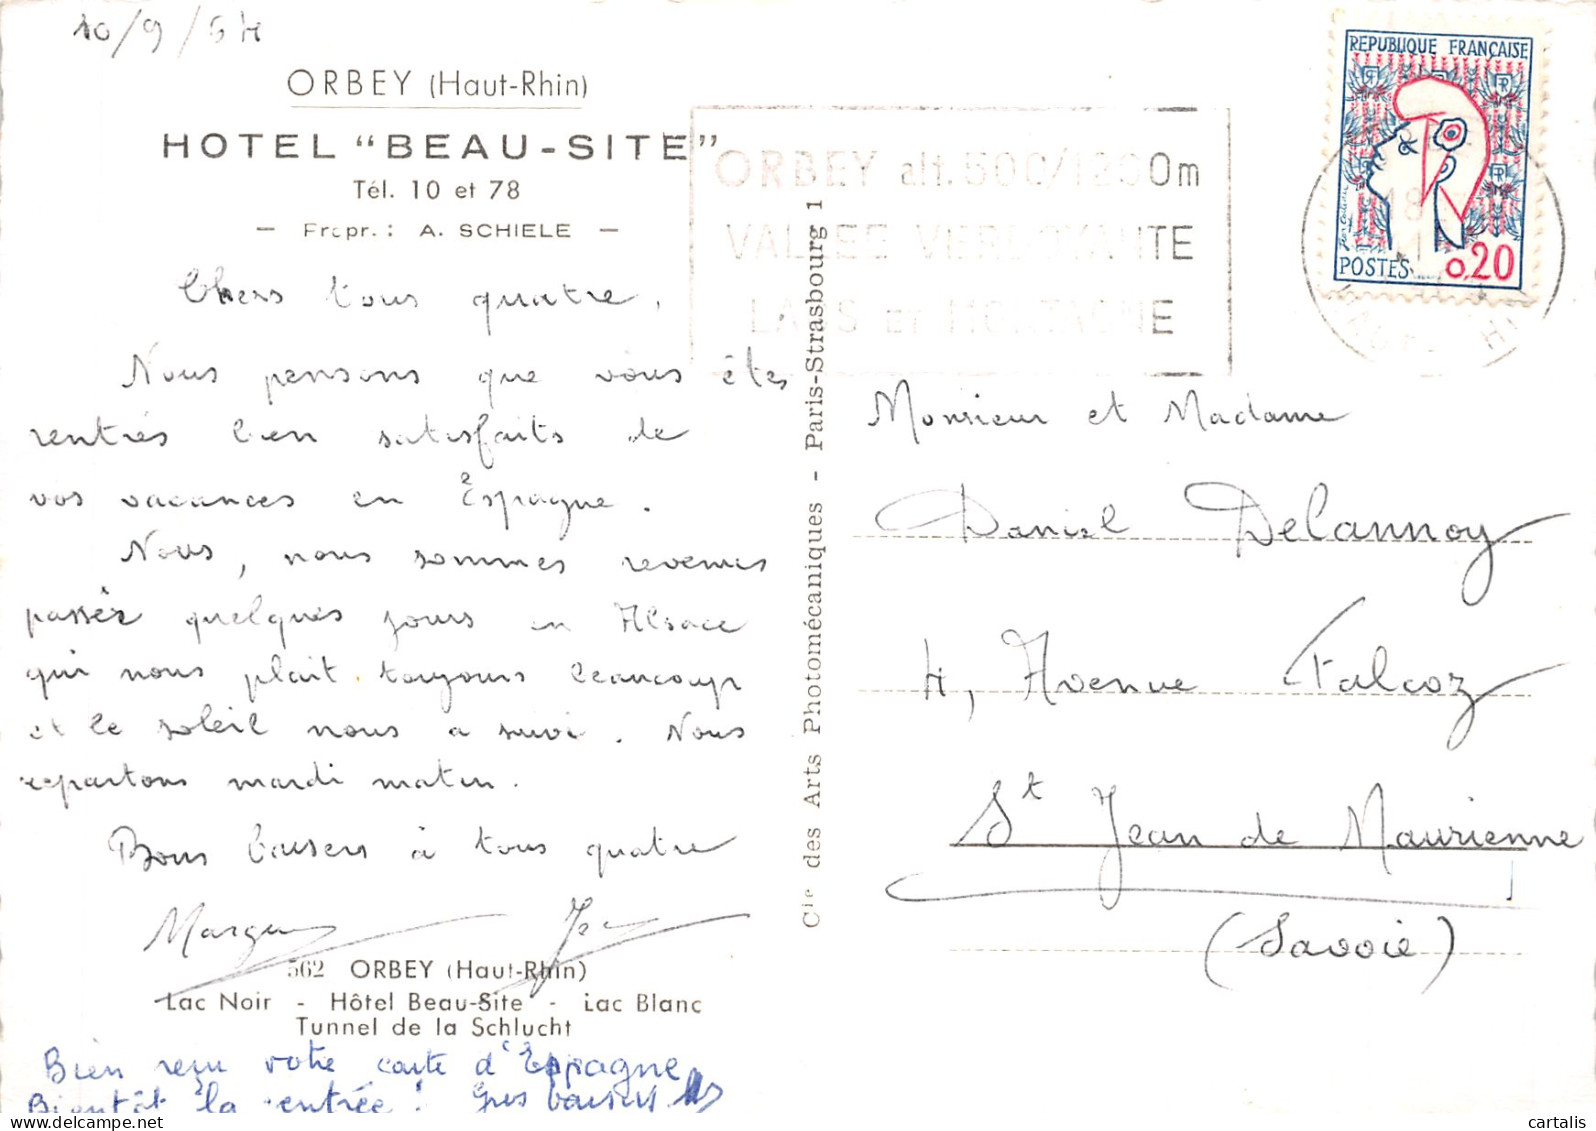 10/9/64
ORBEY (Haut-Rhin)
HOTEL "BEAU-SITE"
Tél. 10 et 78
— Propr. : A. SCHIELE —
Chers tous quatre,
Nous pensons que vous êtes
rentrés bien satisfaits de
vos vacances en Espagne.
Nous, nous sommes revenus
passer quelques jours en Alsace
qui nous plait toujours beaucoup
et le soleil nous a suivi. Nous
repartons mardi matin.
Bons baisers à tous quatre
562 ORBEY (Haut-Rhin)
Lac Noir - Hôtel Beau-Site - Lac Blanc
Tunnel de la Schlucht
Bien reçu votre carte d'Espagne
Bientôt la rentrée! Gros baisers
Cie des Arts Photomécaniques - Paris-Strasbourg 1
ORBEY alt. 500/1200m
VALLEE VERDOYANTE
LACS et MONTAGNE
REPUBLIQUE FRANÇAISE
POSTES 0,20
Monsieur et Madame
Daniel Delannoy
4, Avenue Falcoz
St Jean de Maurienne
(Savoie)
cartalis